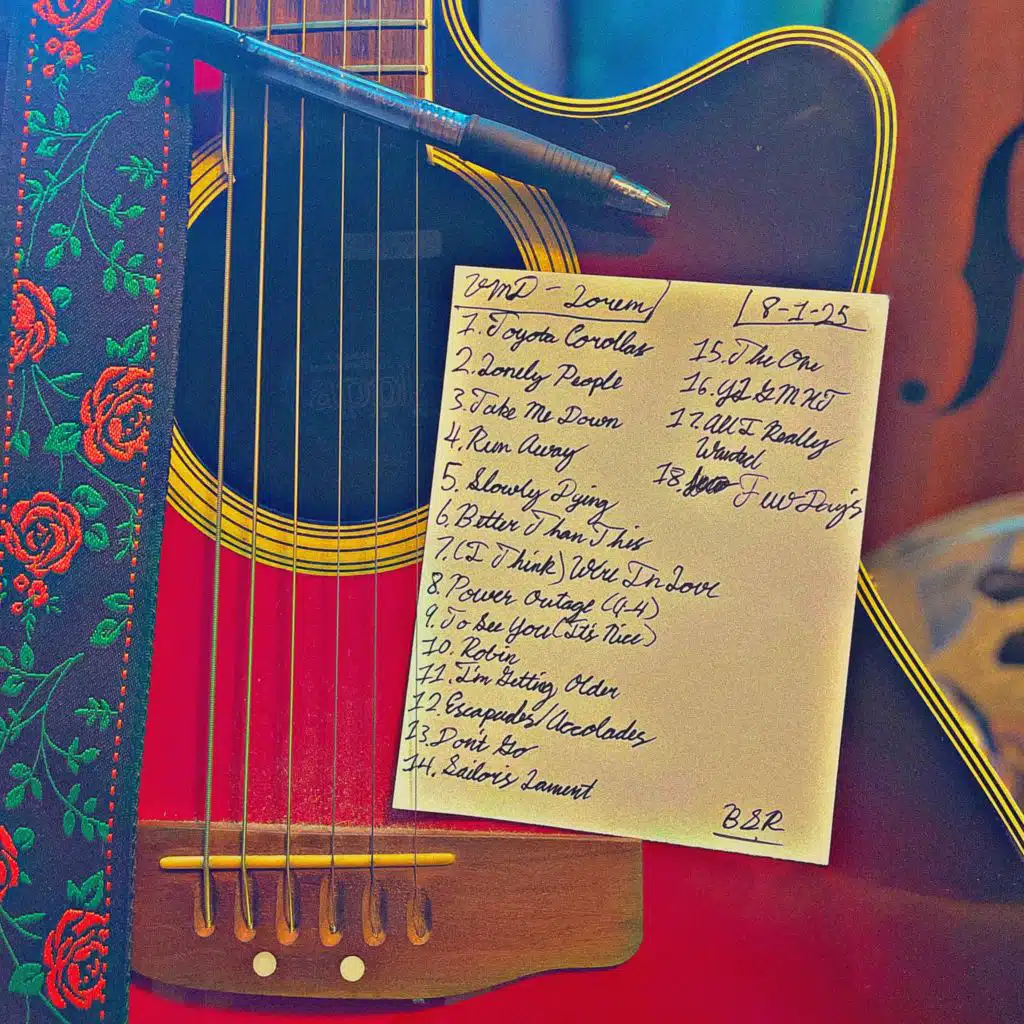 VMD - Lorem
8-1-25
1. Toyota Corollas
2. Lonely People
3. Take Me Down
4. Run Away
5. Slowly Dying
6. Better Than This
7. (I Think) We're In Love
8. Power Outage (G-4)
9. To See You (It's Nice)
10. Robin
11. I'm Getting Older
12. Escapades/Accolades
13. Don't Go
14. Sailor's Lament
15. The One
16. YLGMHT
17. All I Really
Wanted
18. Few Days
BSR